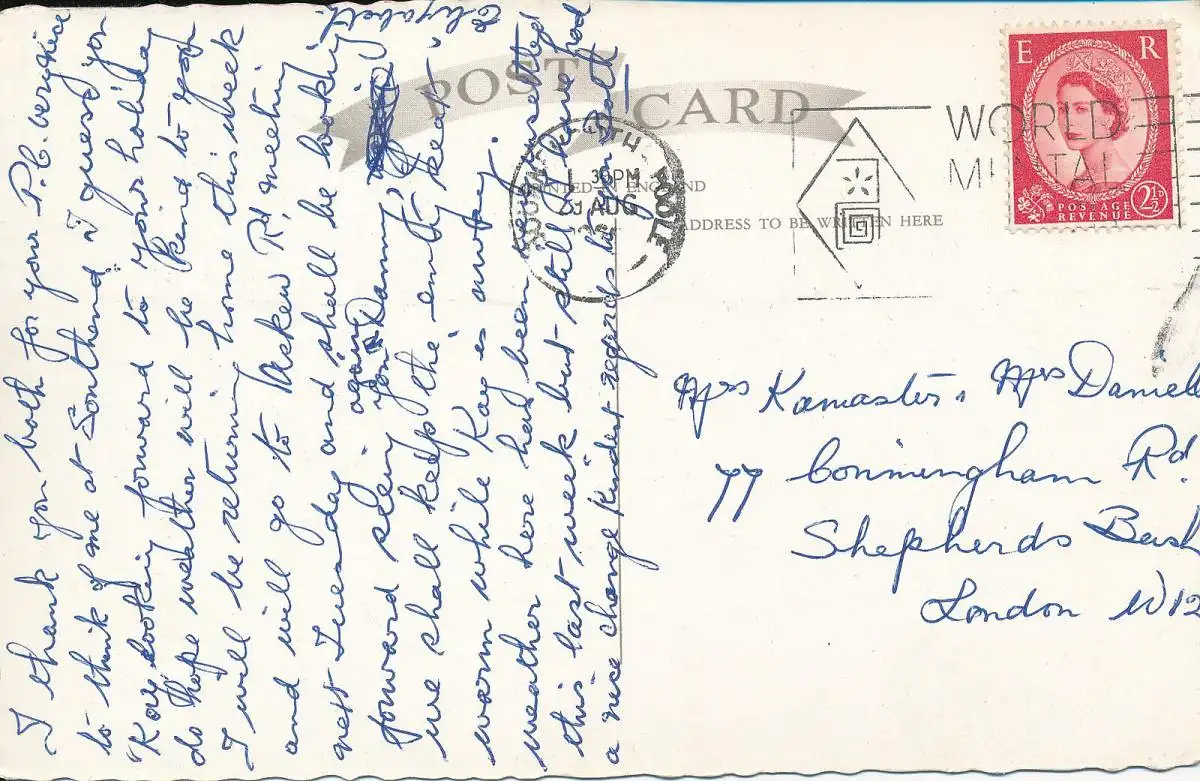 I thank you both for your P.C. very nice
to think of me at Southend I guess you
"Kay looking forward to your holiday
do hope weather will be kind to you
I will be returning home this week
and will go to Askew Rd, meeting
next Tuesday and shall be looking
forward seeing you again Danny,
we shall keep the 'empty seat'
warm while Kay is away.
weather here has been very unsettled
this last week but still I have had
a nice change Kindest regards to you both
Elizabeth.
POST CARD
PRINTED IN ENGLAND
ADDRESS TO BE WRITTEN HERE
BOURNEMOUTH-POOLE
30PM
AUG
WORLD
MENTAL
E R
POSTAGE
REVENUE
2½D
Mrs Kamaster. Mrs Daniel
77 Conningham Rd.
Shepherds Bush
London W12